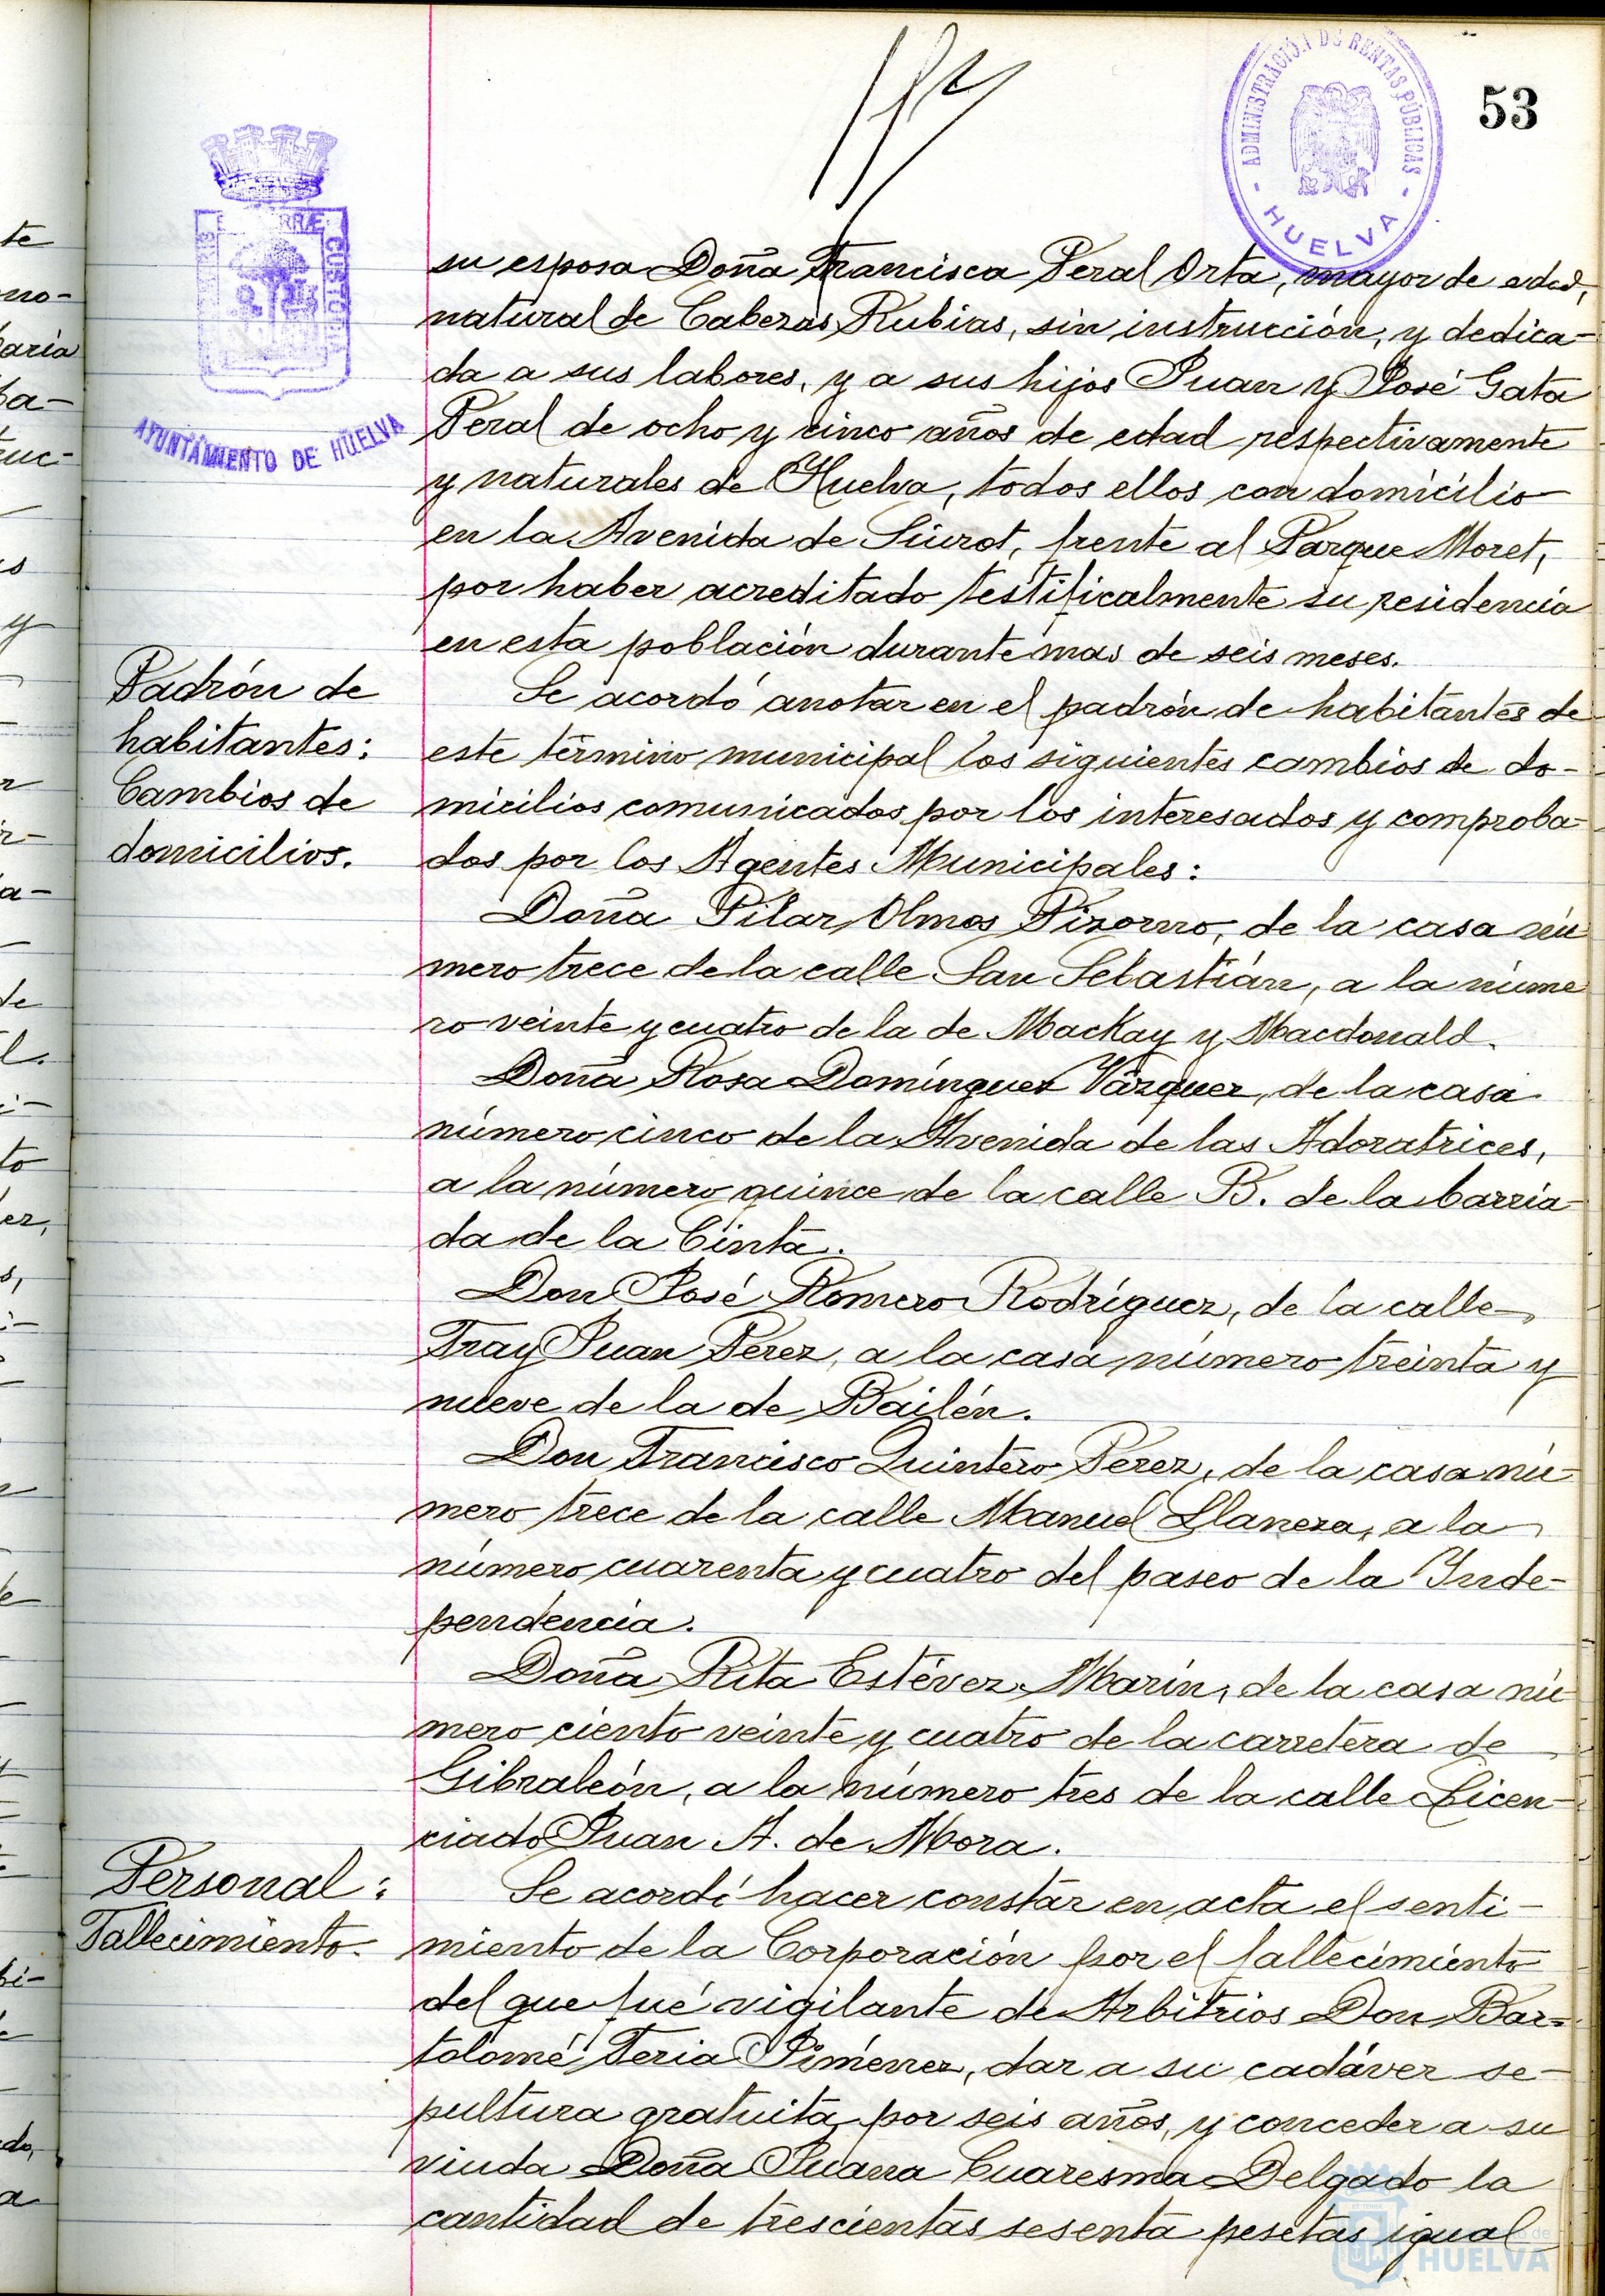 53
ADMINISTRACIÓN DE RENTAS PÚBLICAS
- HUELVA -
CUSTODIA
AYUNTAMIENTO DE HUELVA
su esposa Doña Francisca Peral Orta, mayor de edad,
natural de Cabezas Rubias, sin instrucción, y dedica-
da a sus labores, y a sus hijos Juan y José Gata
Peral de ocho y cinco años de edad respectivamente
y naturales de Huelva, todos ellos con domicilio
en la Avenida de Siurot, frente al Parque Moret,
por haber acreditado testificalmente su residencia
en esta población durante mas de seis meses.
Padrón de
habitantes:
Cambios de
domicilios.
Se acordó anotar en el padrón de habitantes de
este término municipal los siguientes cambios de do-
micilios comunicados por los interesados y comproba-
dos por los Agentes Municipales:
Doña Pilar Olmos Pizorno, de la casa nú
mero trece de la calle San Sebastián, a la núme
ro veinte y cuatro de la de Mackay y Macdonald.
Doña Rosa Domínguez Vázquez, de la casa
número cinco de la Avenida de las Adoratrices,
a la número quince de la calle B. de la barria
da de la Cinta.
Don José Romero Rodríguez, de la calle
Fray Juan Pérez, a la casa número treinta y
nueve de la de Bailén.
Don Francisco Quintero Pérez, de la casa nú-
mero trece de la calle Manuel Llaneza, a la
número cuarenta y cuatro del paseo de la Inde-
pendencia.
Doña Rita Estévez Marín, de la casa nú
mero ciento veinte y cuatro de la carretera de
Gibraleón, a la número tres de la calle Licen-
ciado Juan A. de Mora.
Personal:
Fallecimiento.
Se acordó hacer constar en acta el senti-
miento de la Corporación por el fallecimiento
del que fué vigilante de Arbitrios Don Bar-
tolomé Feria Jiménez, dar a su cadáver se-
pultura gratuita por seis años, y conceder a su
viuda Doña Juana Cuaresma Delgado la
cantidad de trescientas sesenta pesetas igual
HUELVA